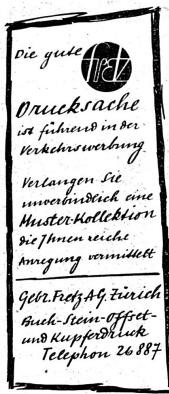 Die gute
Fretz
Drucksache
ist führend in der
Verkehrswerbung.
Verlangen Sie
unverbindlich eine
Muster-Kollektion
die Ihnen reiche
Anregung vermittelt
Gebr. Fretz A.G. Zürich
Buch-Stein-Offset-
und Kupferdruck
Telephon 26 887